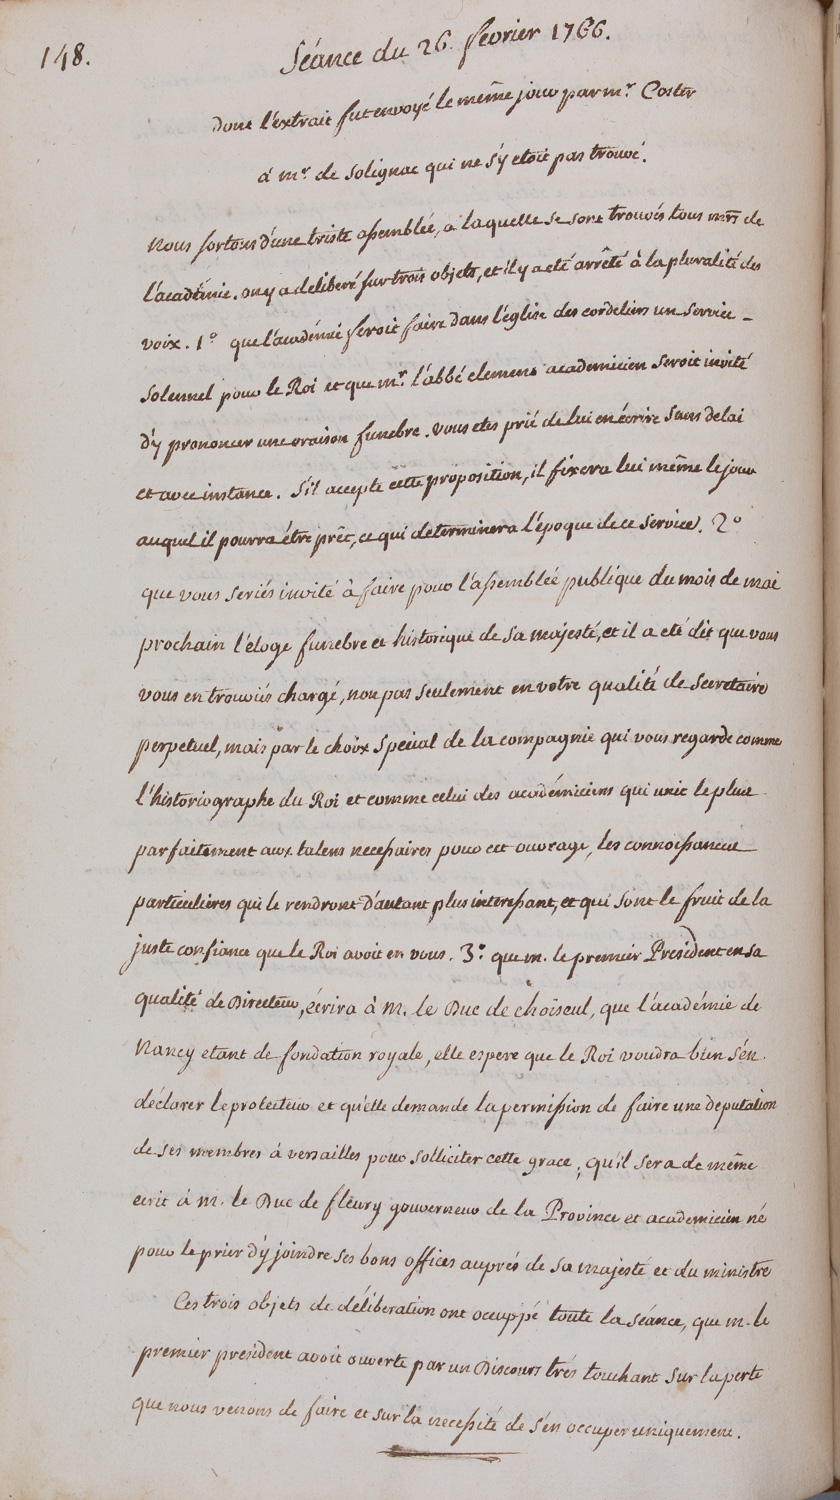 148.
Séance du 26. fevrier 1766.
dont l'extrait fut envoyé le même jour par mr. Coster
à mr. de Solignac qui ne s'y etoit pas trouvé.
Nous sortons d'une triste assemblée, a laquelle se sont trouvés tous mrs de
l'académie. on y a deliberé sur trois objets, et il y a eté arrêté à la pluralité des
voix. 1° que l'académie feroit faire dans l'église des cordeliers un service
solennel pour le Roi et que mr. l'abbé clement academicien seroit invité
d'y prononcer une oraison funebre. vous etes prié de lui en écrire sans delai
et avec instance. S'il accepte cette proposition, il fixera lui même le jour
auquel il pourra être prêt, ce qui determinera l'époque de ce service. 2°
que vous seriés invité à faire pour l'assemblée publique du mois de mai
prochain l'éloge funebre et historique de sa majesté, et il a eté dit que vous
vous en trouviés chargé, non pas seulement en votre qualité de secretaire
perpetuel, mais par le choix special de la compagnie qui vous regarde comme
l'historiographe du Roi et comme celui des académiciens qui unit le plus
parfaitement aux talens necessaires pour cet ouvrage, les connoissances
particulières qui le rendront d'autant plus interessant, et qui sont le fruit de la
juste confiance que le Roi avoit en vous. 3° que m. le premier Président en sa
qualité de Directeur, écrira à M. le Duc de choiseul, que l'académie de
Nancy etant de fondation royale, elle espere que le Roi voudra bien s'én
déclarer le protecteur et qu'elle demande la permission de faire une deputation
de ses membres à versailles pour solliciter cette grace; qu'il sera de même
ecrit à M. le Duc de fleury gouverneur de la Province et academicien né
pour le prier d'y joindre ses bons offices auprés de sa majesté et du ministre
Ces trois objets de déliberation ont occuppé toute la séance, que m. le
premier president avoit ouverte par un Discours trés touchant sur la perte
que nous venons de faire et sur la necessité de s'én occuper uniquement.